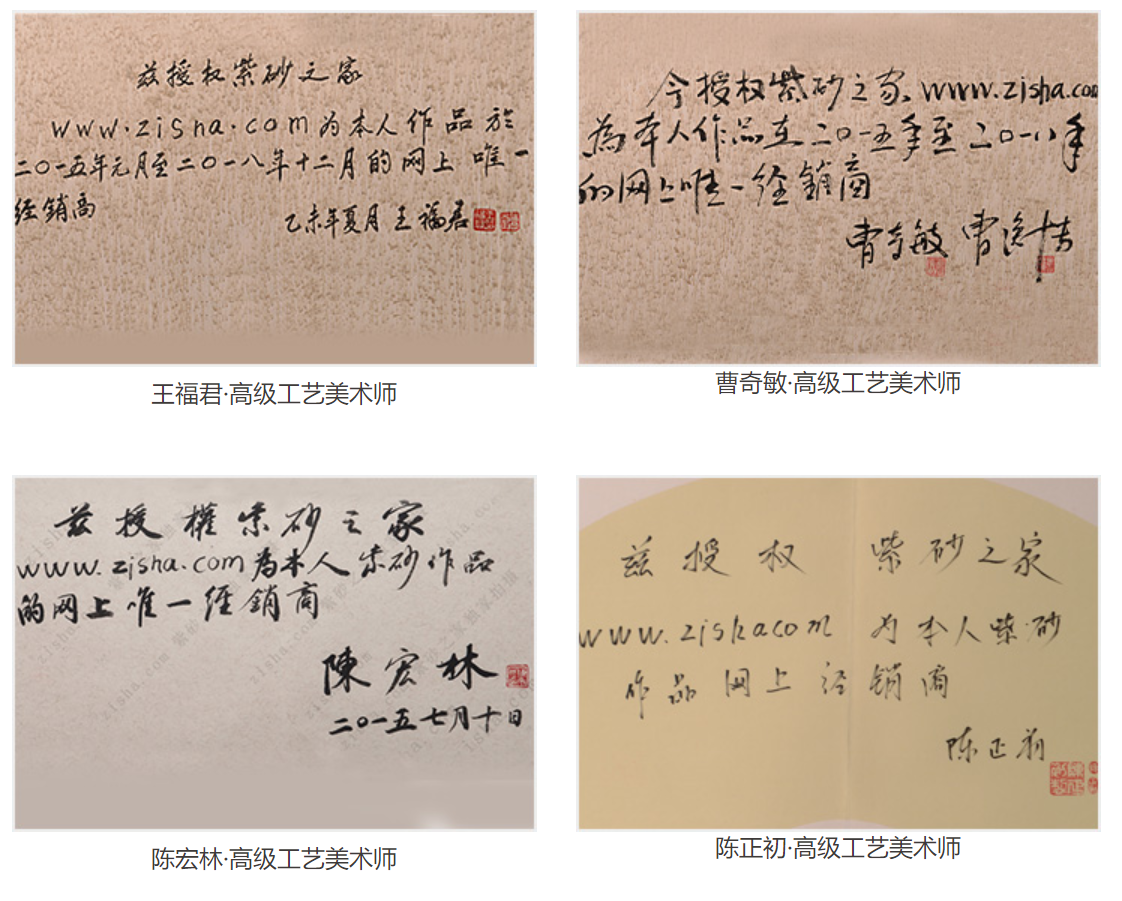 兹授权紫砂之家
www.zisha.com为本人作品於
二〇一五年元月至二〇一八年十二月的网上唯一
经销商
乙未年夏月 王福君
王福君·高级工艺美术师
今授权紫砂之家www.zisha.com
为本人作品在二〇一五年至二〇一八年
的网上唯一经销商
曹奇敏 曹
曹奇敏·高级工艺美术师
兹授權紫砂之家
www.zisha.com為本人紫砂作品
的网上唯一经銷商
陳宏林
二〇一五七月十日
陈宏林·高级工艺美术师
兹授权 紫砂之家
www.zishacom 为本人紫砂
作品网上经销商
陈正初
陈正初·高级工艺美术师